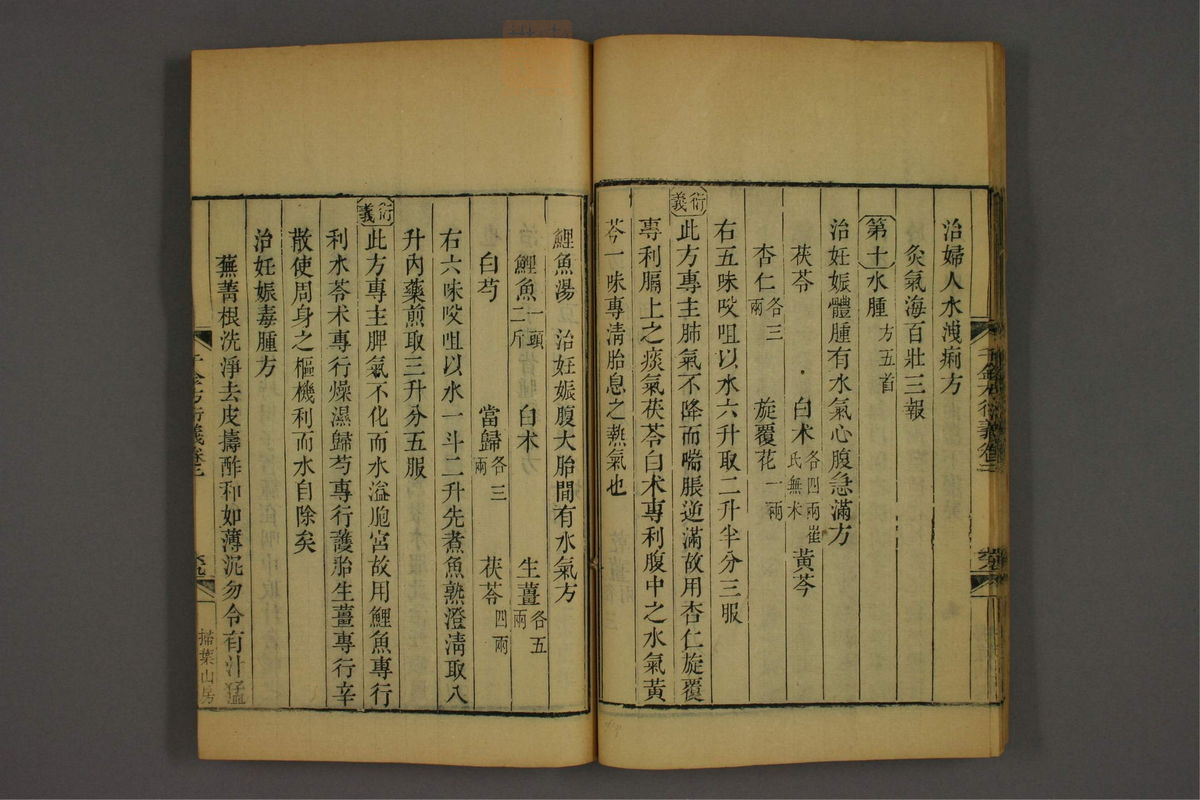 治婦人水洩痢方
灸氣海百壯三報
第十水腫方五首
治妊娠體腫有水氣心腹急滿方
茯苓 白术各四兩崔氏無术 黃芩
杏仁各三兩 旋覆花一兩
右五味㕮咀以水六升取二升半分三服
衍義此方專主肺氣不降而喘脹逆滿故用杏仁旋覆
專利膈上之痰氣茯苓白术專利腹中之水氣黃
芩一味專淸胎息之熱氣也
鯉魚湯 治妊娠腹大胎間有水氣方
鯉魚一頭二斤 白术 生薑各五兩
白芍 當歸各三兩 茯苓四兩
右六味㕮咀以水一斗二升先煮魚熟澄淸取八
升內藥煎取三升分五服
衍義此方專主脾氣不化而水溢胞宮故用鯉魚專行
利水苓术專行燥濕歸芍專行護胎生薑專行辛
散使周身之樞機利而水自除矣
治妊娠毒腫方
蕪菁根洗淨去皮擣酢和如薄泥勿令有汁猛
千金方衍義卷三
掃葉山房